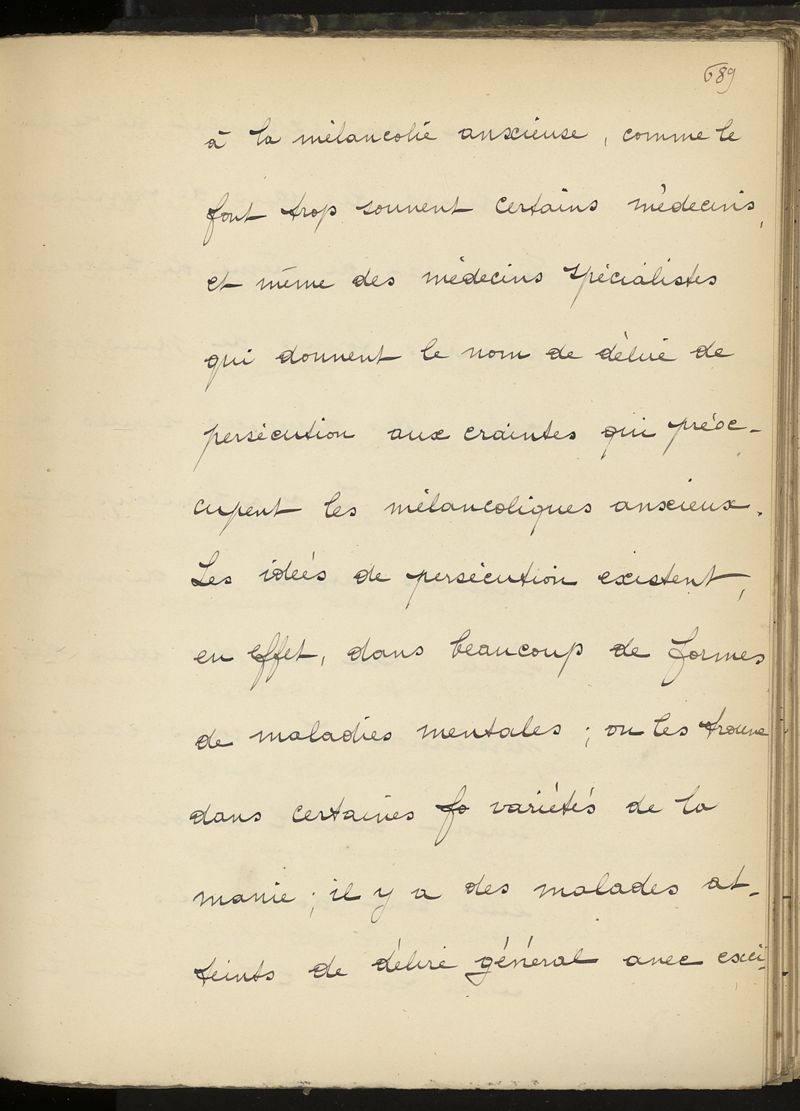 689
à la mélancolie anxieuse, comme le
font trop souvent certains médecins,
et même des médecins spécialistes
qui donnent le nom de délire de
persécution aux craintes qui préoc-
cupent les mélancoliques anxieux.
Les idées de persécution existent,
en effet, dans beaucoup de formes
de maladies mentales ; on les trouve
dans certaines fo variétés de la
manie ; il y a des malades at-
teints de délire général avec exci-